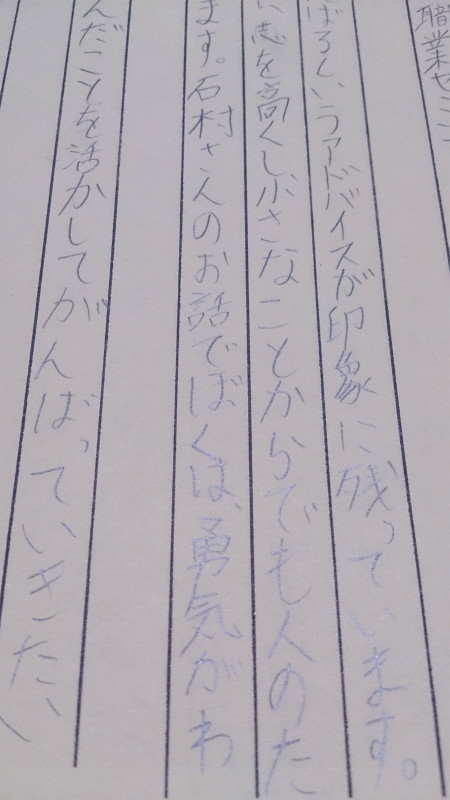 職業セミ
ばろくいうアドバイスが印象に残っています。
い志を高くし小さなことからでも人のた
ます。石村さんのお話でぼくは、勇気がわ
んだことを活かしてがんばっていきたい